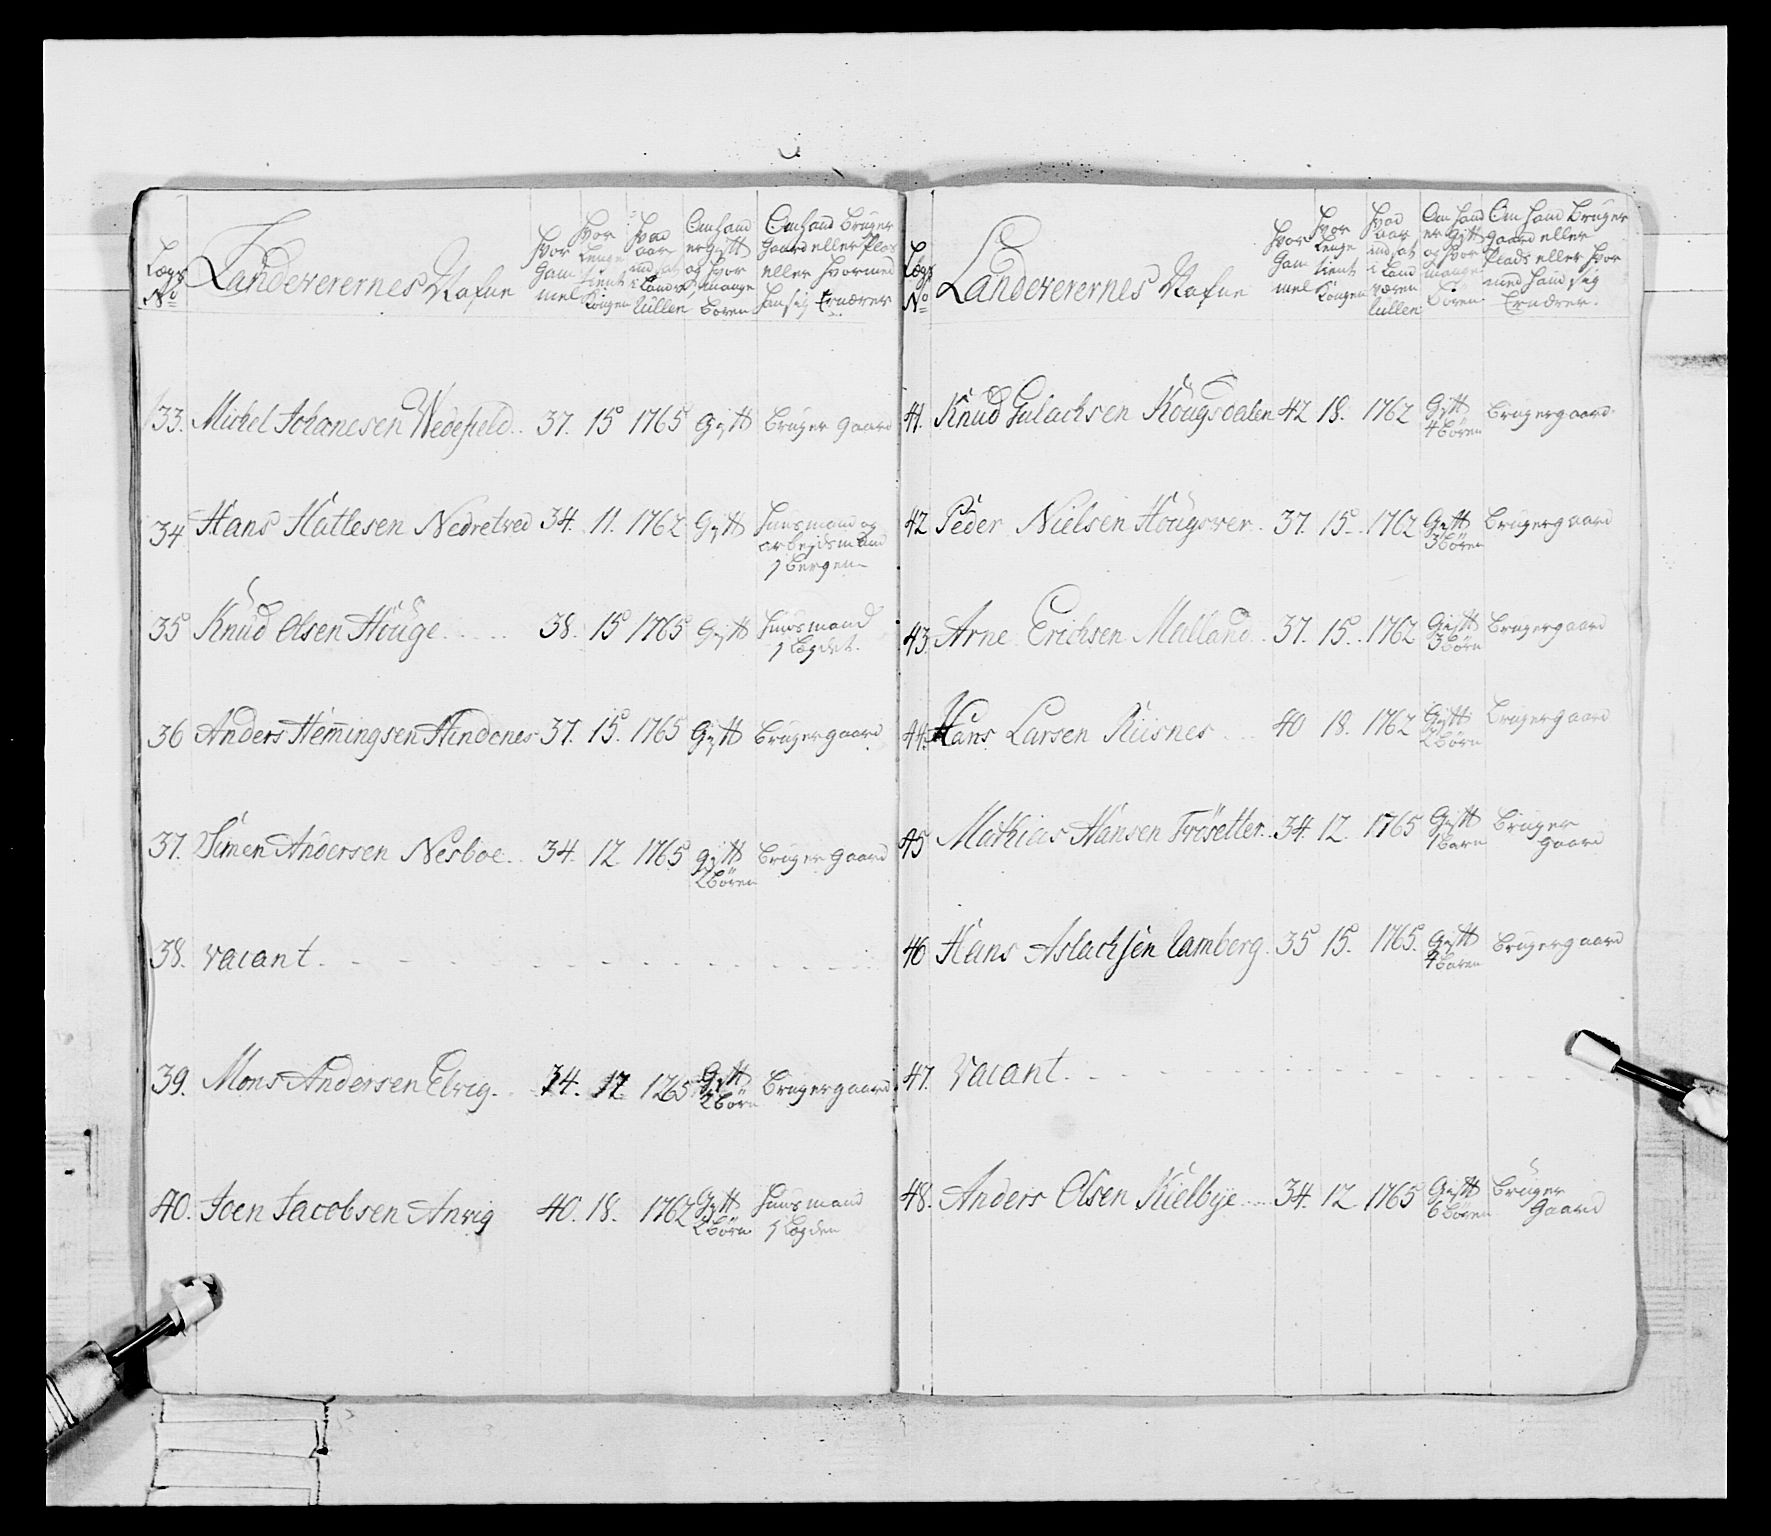 Lægs No
Landeverernes Nafne
Hvor Gammel
Hvor Lenge tient Kongen
Hvad aar indsat i Landv: Rullen
Om Hand er gift og Hvor mange Børen
Om Hand Bruger Gaard eller Plas eller Hvormed Han sig Ernærer
33. Michel Johanesen Wedefield. 37. 15 1765 gift Bruger gaard
34 Hans Hatlesen Nedretved 34. 11. 1762 Gift Huusmand og
arbeidsmand
i bergen
35 Knud Olsen Höuge 38. 15 1765 Gift Huusmand
i Lægdet.
36 Anders Hemingsen Hindenes 37. 15. 1765 Gift Brugergaard
37. Simen Andersen Nesboe. 34. 12. 1765 gift Bruger gaard
2 børen
38. vacant.
39. Mons Andersen Elvig. 34. 12. 1765 Gift Brugergaard
2 börn
40. Joen Jacobsen Anvig 40. 18. 1762 Gift Huusmand
2 børn i Lægden
Lægs No
Landeverernes Nafne
Hvor Gammel
Hvor Lenge tient Kongen
Hvad aar indsat i Land væren Rullen
Om Hand er gift og Hvor mange Bören
Om Hand Bruger gaard eller Plads eller Hvor med Hand sig Ernærer.
41. Knud Gulachsen Kougsdalen 42 18. 1762 Gift Brugergaard.
4 børen
42 Peder Nielsen Hougsver. 37. 15. 1762 Gift Brugergaard
3 børen
43. Arne Erichsen Malland. 37. 15. 1762 Gift Brugergaard
3 børn
44. Hans Larsen Riisnes 40 18. 1762 Gift Brugergaard
2 børn
45 Mathias Hansen Frösetter. 34. 12. 1765 Gift Bruger
1 barn gaard
46 Hans Aslachsen Camberg. 35 15. 1765. Gift Brugergaard
4 børen
47. vacant.
48. Anders Olsen Kielbye 34. 12 1765 Gift Bruger
6 børen Gaard